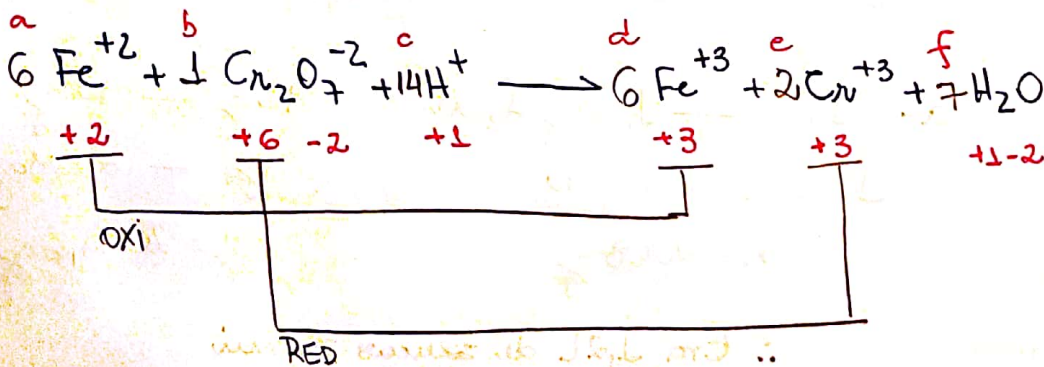 a b c d e f
6 Fe⁺² + 1 Cr₂O₇⁻² + 14H⁺ ⟶ 6 Fe⁺³ + 2Cr⁺³ + 7H₂O
+2 +6 -2 +1 +3 +3 +1-2
OXi
RED